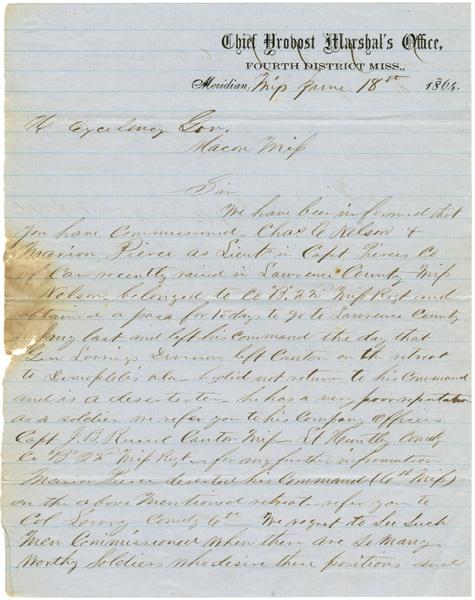 Chief Provost Marshal's Office,
FOURTH DISTRICT MISS.,
Meridian, Miss June 18th 1864.
Excelency Gov.
Macon Miss
Sir
We have been informed that
you have Commissioned Chas E Nelson &
Marion Pierce as Lieuts in Capt Pierces Co
of Cav recently raised in Lawrence County Miss
Nelson belonged to Co "B" 22d Miss Regt and
obtained a pass for 15 days to go to Lawrence County
in Jany last and left his command the day that
Gen Lorings Division left Canton on the retreat
to Demopolis ala he did not return to his Command
and is a deserter he has a very poor reputation
as a soldier, we refer you to his Company Officers
Capt J. D. Canton Miss Lt Huntley Comdg
Co "B" 22d Miss Regt for any further information
Marion Pierce deserted his Command (6th Miss)
on the above mentioned retreat refer you to
Col Lowry Comdg 6th We regret to See Such
Men Commissioned when there are so many
worthy Soldiers who desire these positions and